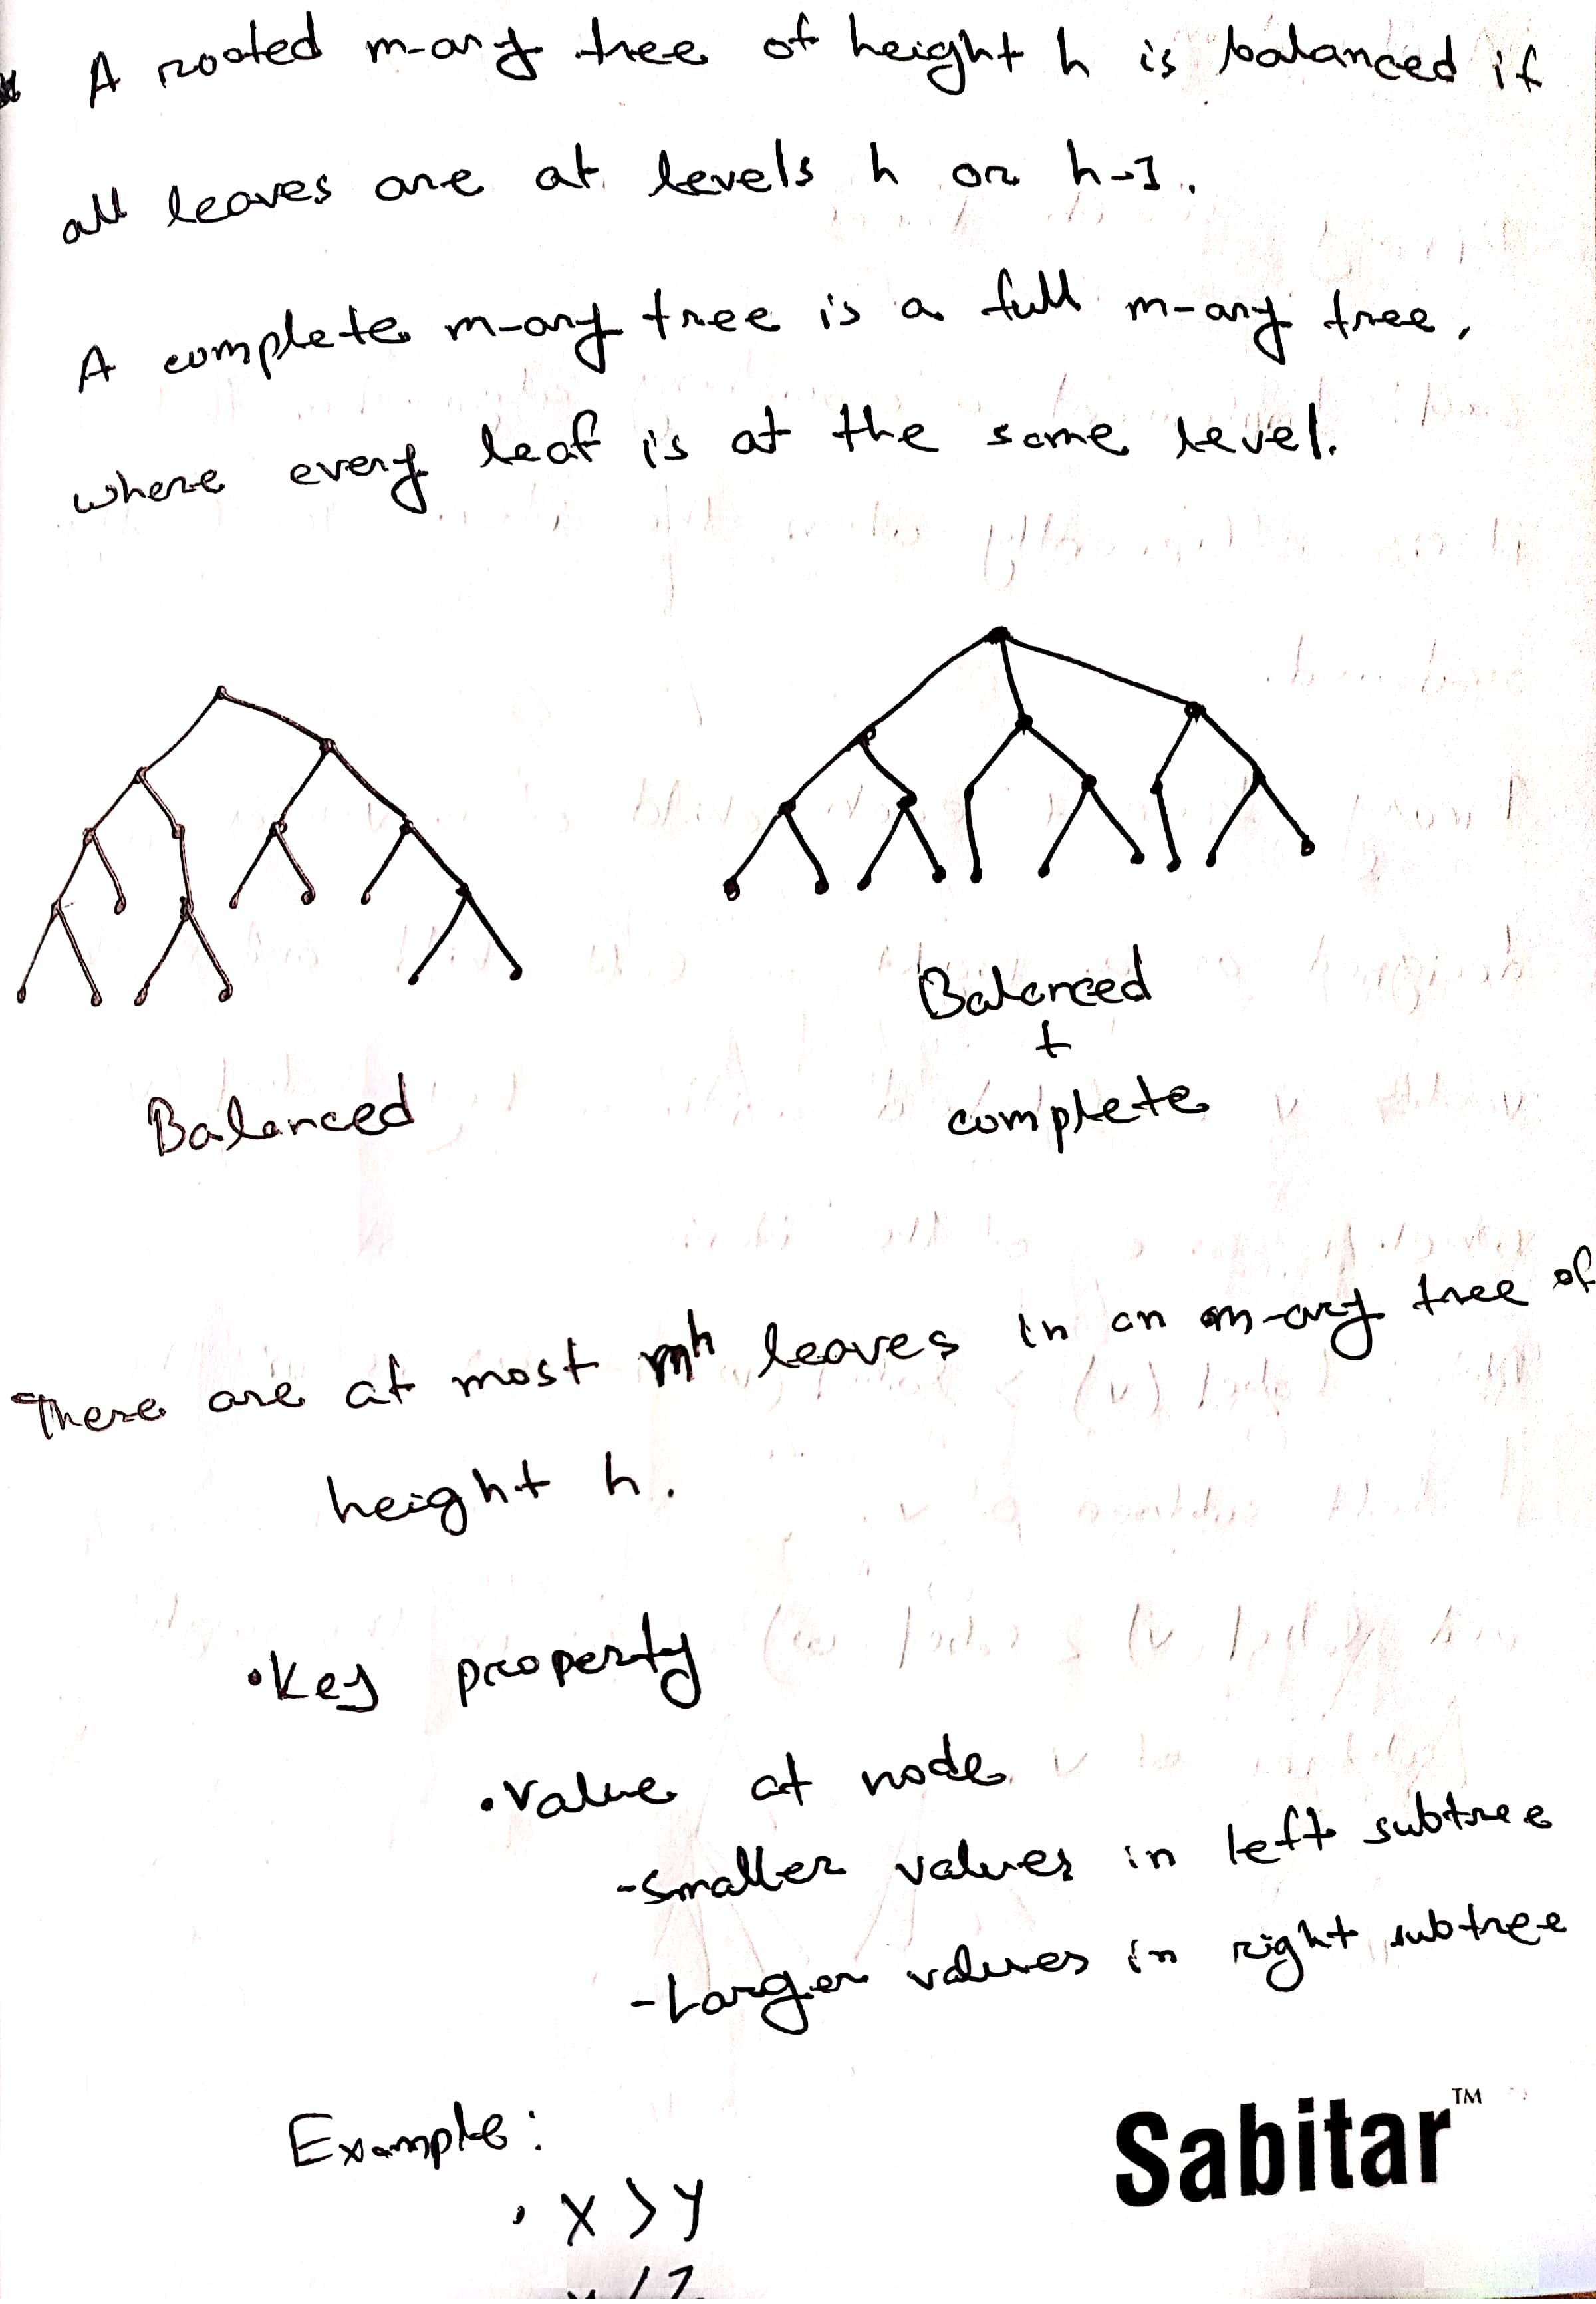 A rooted m-ary tree of height h is balanced if
all leaves are at levels h or h-1.
A complete m-ary tree is a full m-ary tree,
where every leaf is at the same level.
Balanced
Balanced
+
complete
There are at most mʰ leaves in an m-ary tree of
height h.
• Key property
• Value at node
- Smaller values in left subtree
- Larger values in right subtree
Example:
• X > Y
Sabitar™